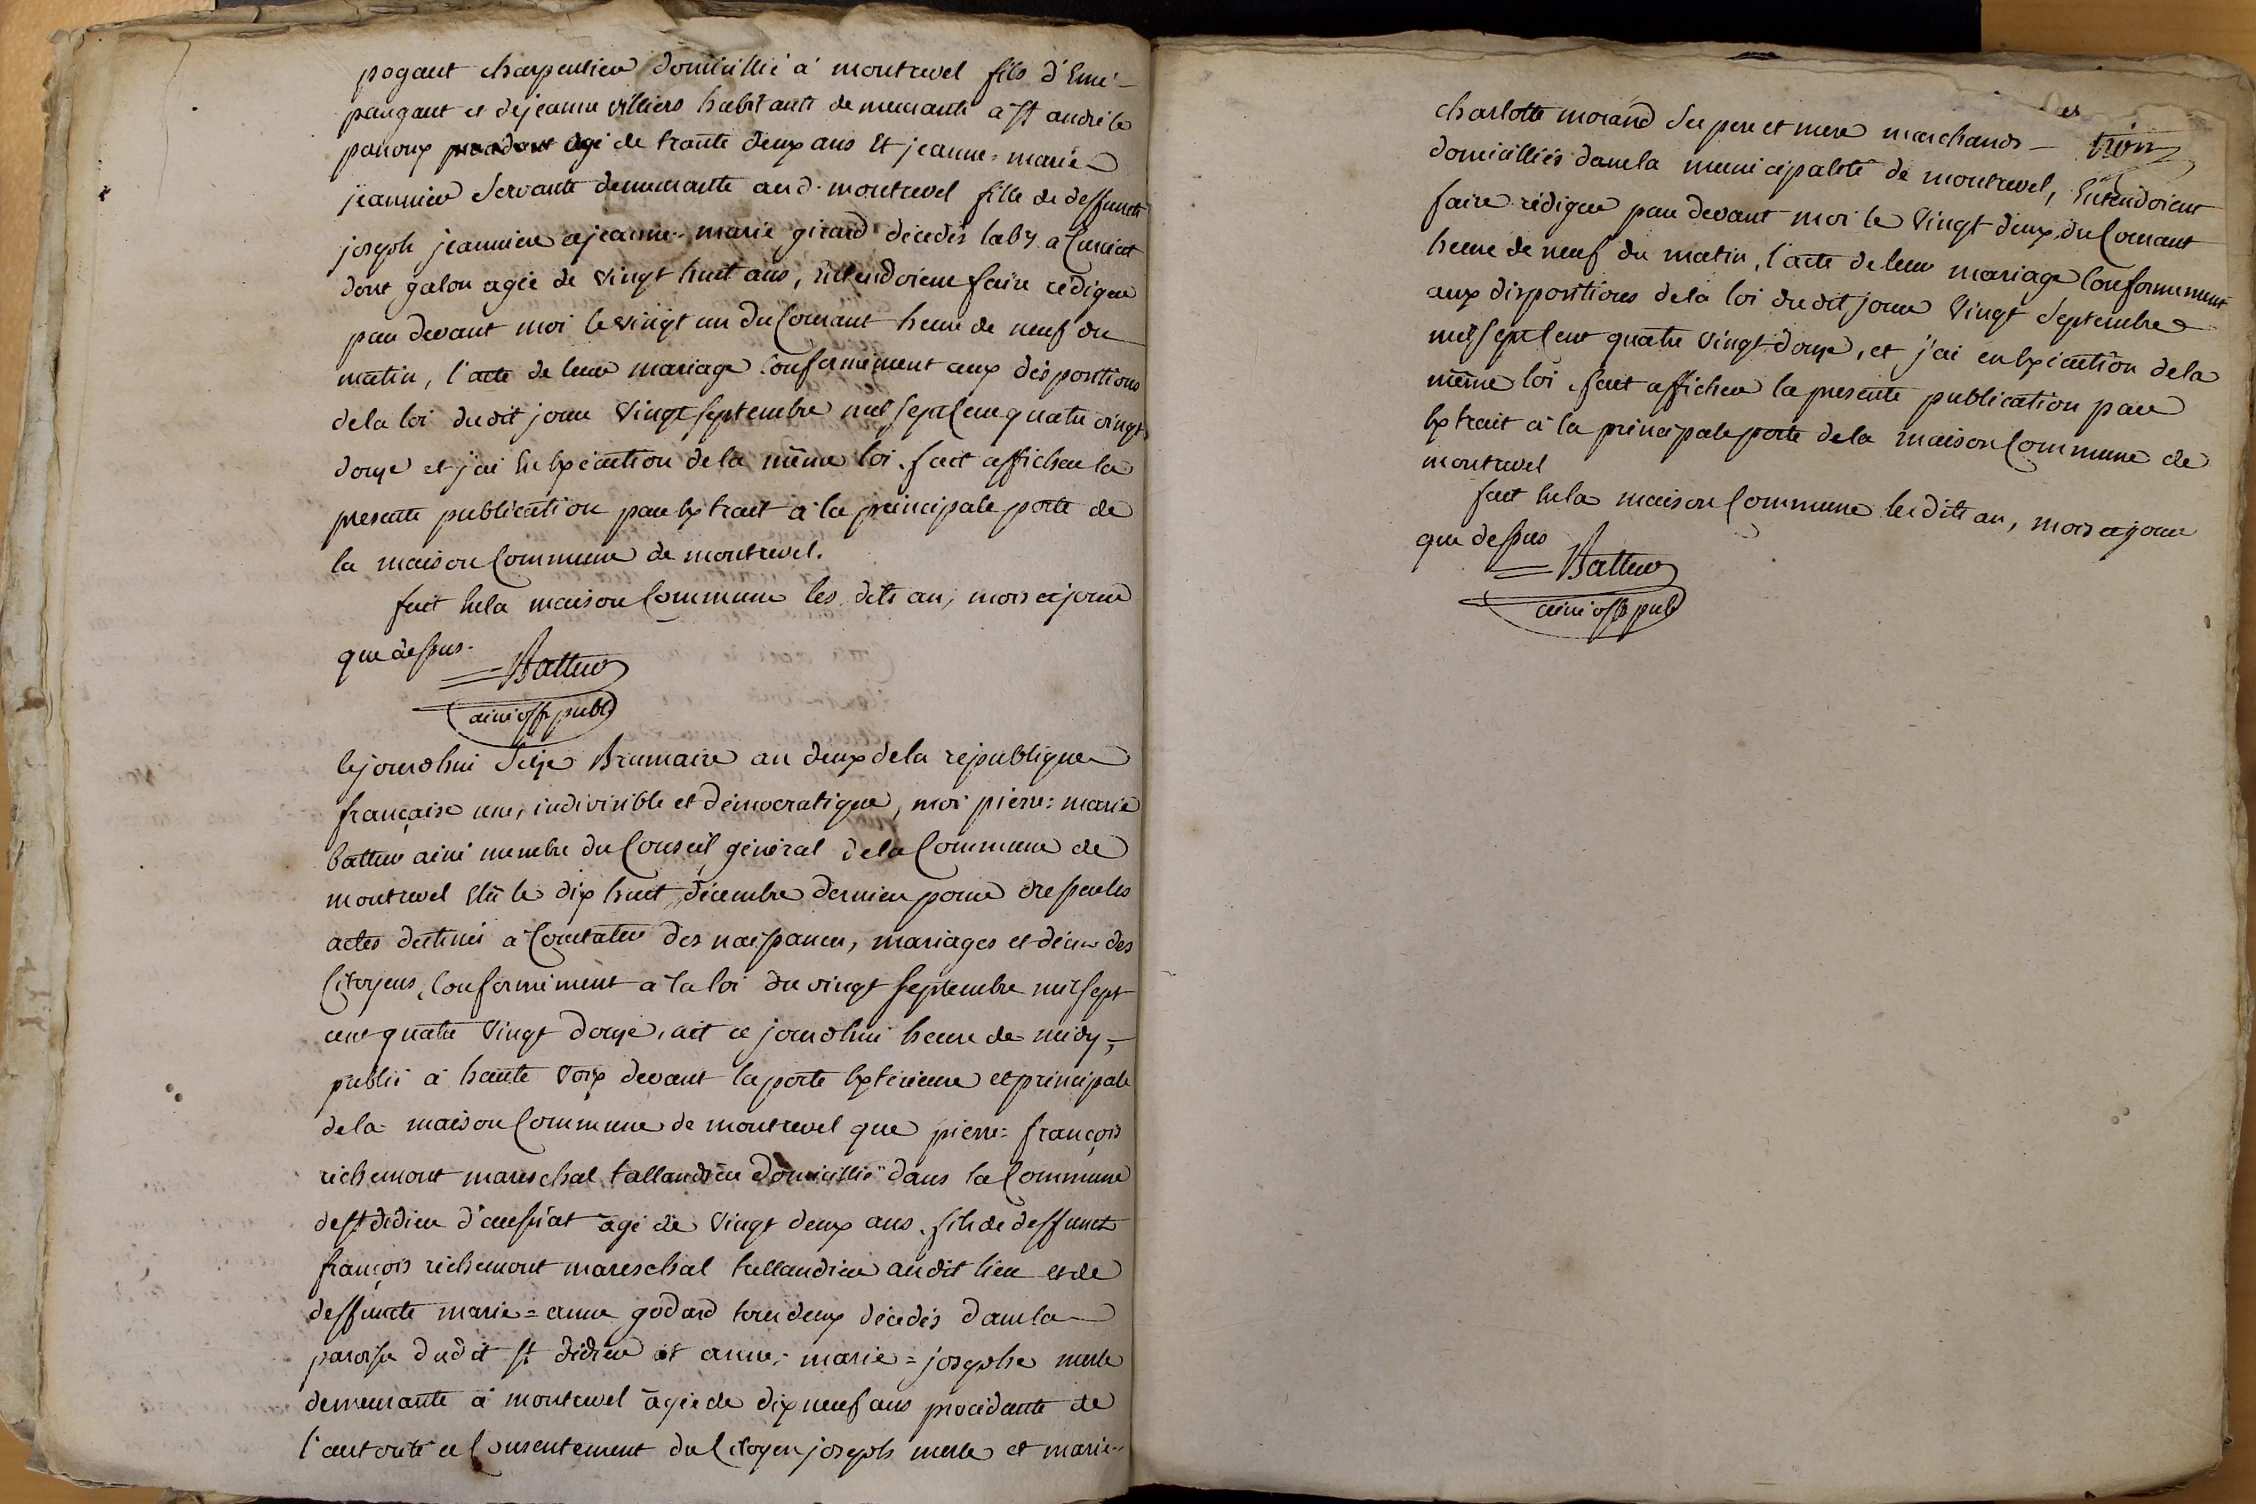 pogaut charpentier domicillié a montrevel fils d'Emé
paugaut et de jeanne villiers habitant demeurante a st andré le
panoux procedant agé de trante deux ans Et jeanne-marie
jeannier Servante demeurante aud. montrevel fille de deffunts
joseph jeannier et jeanne-marie girard décédés laby a Cueiat
dont galon agée de vingt huit ans, entendoient faire rédiger
par devant moi le vingt un du Courant heure de neuf du
matin, l'acte de leur mariage Conformément aux dispositions
de la loi dudit jour vingt septembre mil sept Cent quatre vingt
douze et j'ai En Exécution de la même loi fait afficher la
presente publication par Extrait à la principale porte de
la maison Commune de montrevel.
fait En la maison Commune les dits an, mois et jour
que dessus.
Battur
ainé off publ
Cejourdhui Seize Brumaire an deux de la république
française une, indivisible et démocratique, moi pierre-marie
battur ainé membre du Conseil général de la Commune de
montrevel Elû le dix huit décembre dernier pour dresser les
actes destinés a Constater des naissances, mariages et décès des
Citoyens, Conformément a la loi du vingt septembre mil sept
cent quatre vingt douze, ait ce jourdhui heure de midy,
publié à haute voix devant la porte Extérieure et principale
de la maison Commune de montrevel que pierre-françois
richemont mareschal tallandier domicillié dans la Commune
de st didier d'aussiat agé de vingt deux ans, fils de deffunct
françois richemont mareschal tallandier audit lieu et de
deffuncte marie-anne godard tous deux décédés dans la
paroisse dudit st didier et anne-marie-josephe merle
demeurante à montrevel agée de dix neuf ans procédante de
l'autorité et Consentement du Citoyen joseph merle et marie-
charlotte morand Ses pere et mere marchands
domicilliés dans la municipalité de montrevel, Entendoient
faire rédiger par devant moi le vingt deux du Courant
heure de neuf du matin, l'acte de leur mariage Conformément
aux dispositions de la loi dudit jour vingt Septembre
mil sept Cent quatre vingt-douze, et j'ai en Exécution de la
même loi fait afficher la presente publication par
Extrait à la principale porte de la maison Commune de
montrevel
fait En la maison Commune les dits an, mois et jour
que dessus
Battur
ainé off pub